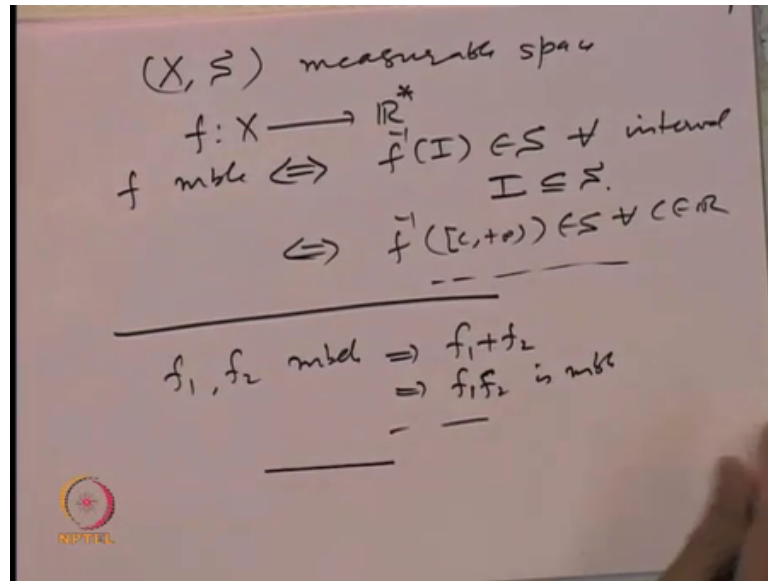 (X, S) measurable space
f : X ⟶ ℝ*
f mble ⟺ f⁻¹(I) ∈ S ∀ interval
I ⊆ S.
⟺ f⁻¹([c, +∞)) ∈ S ∀ c ∈ ℝ
f₁, f₂ mbel ⟹ f₁ + f₂
⟹ f₁f₂ is mble
NPTEL